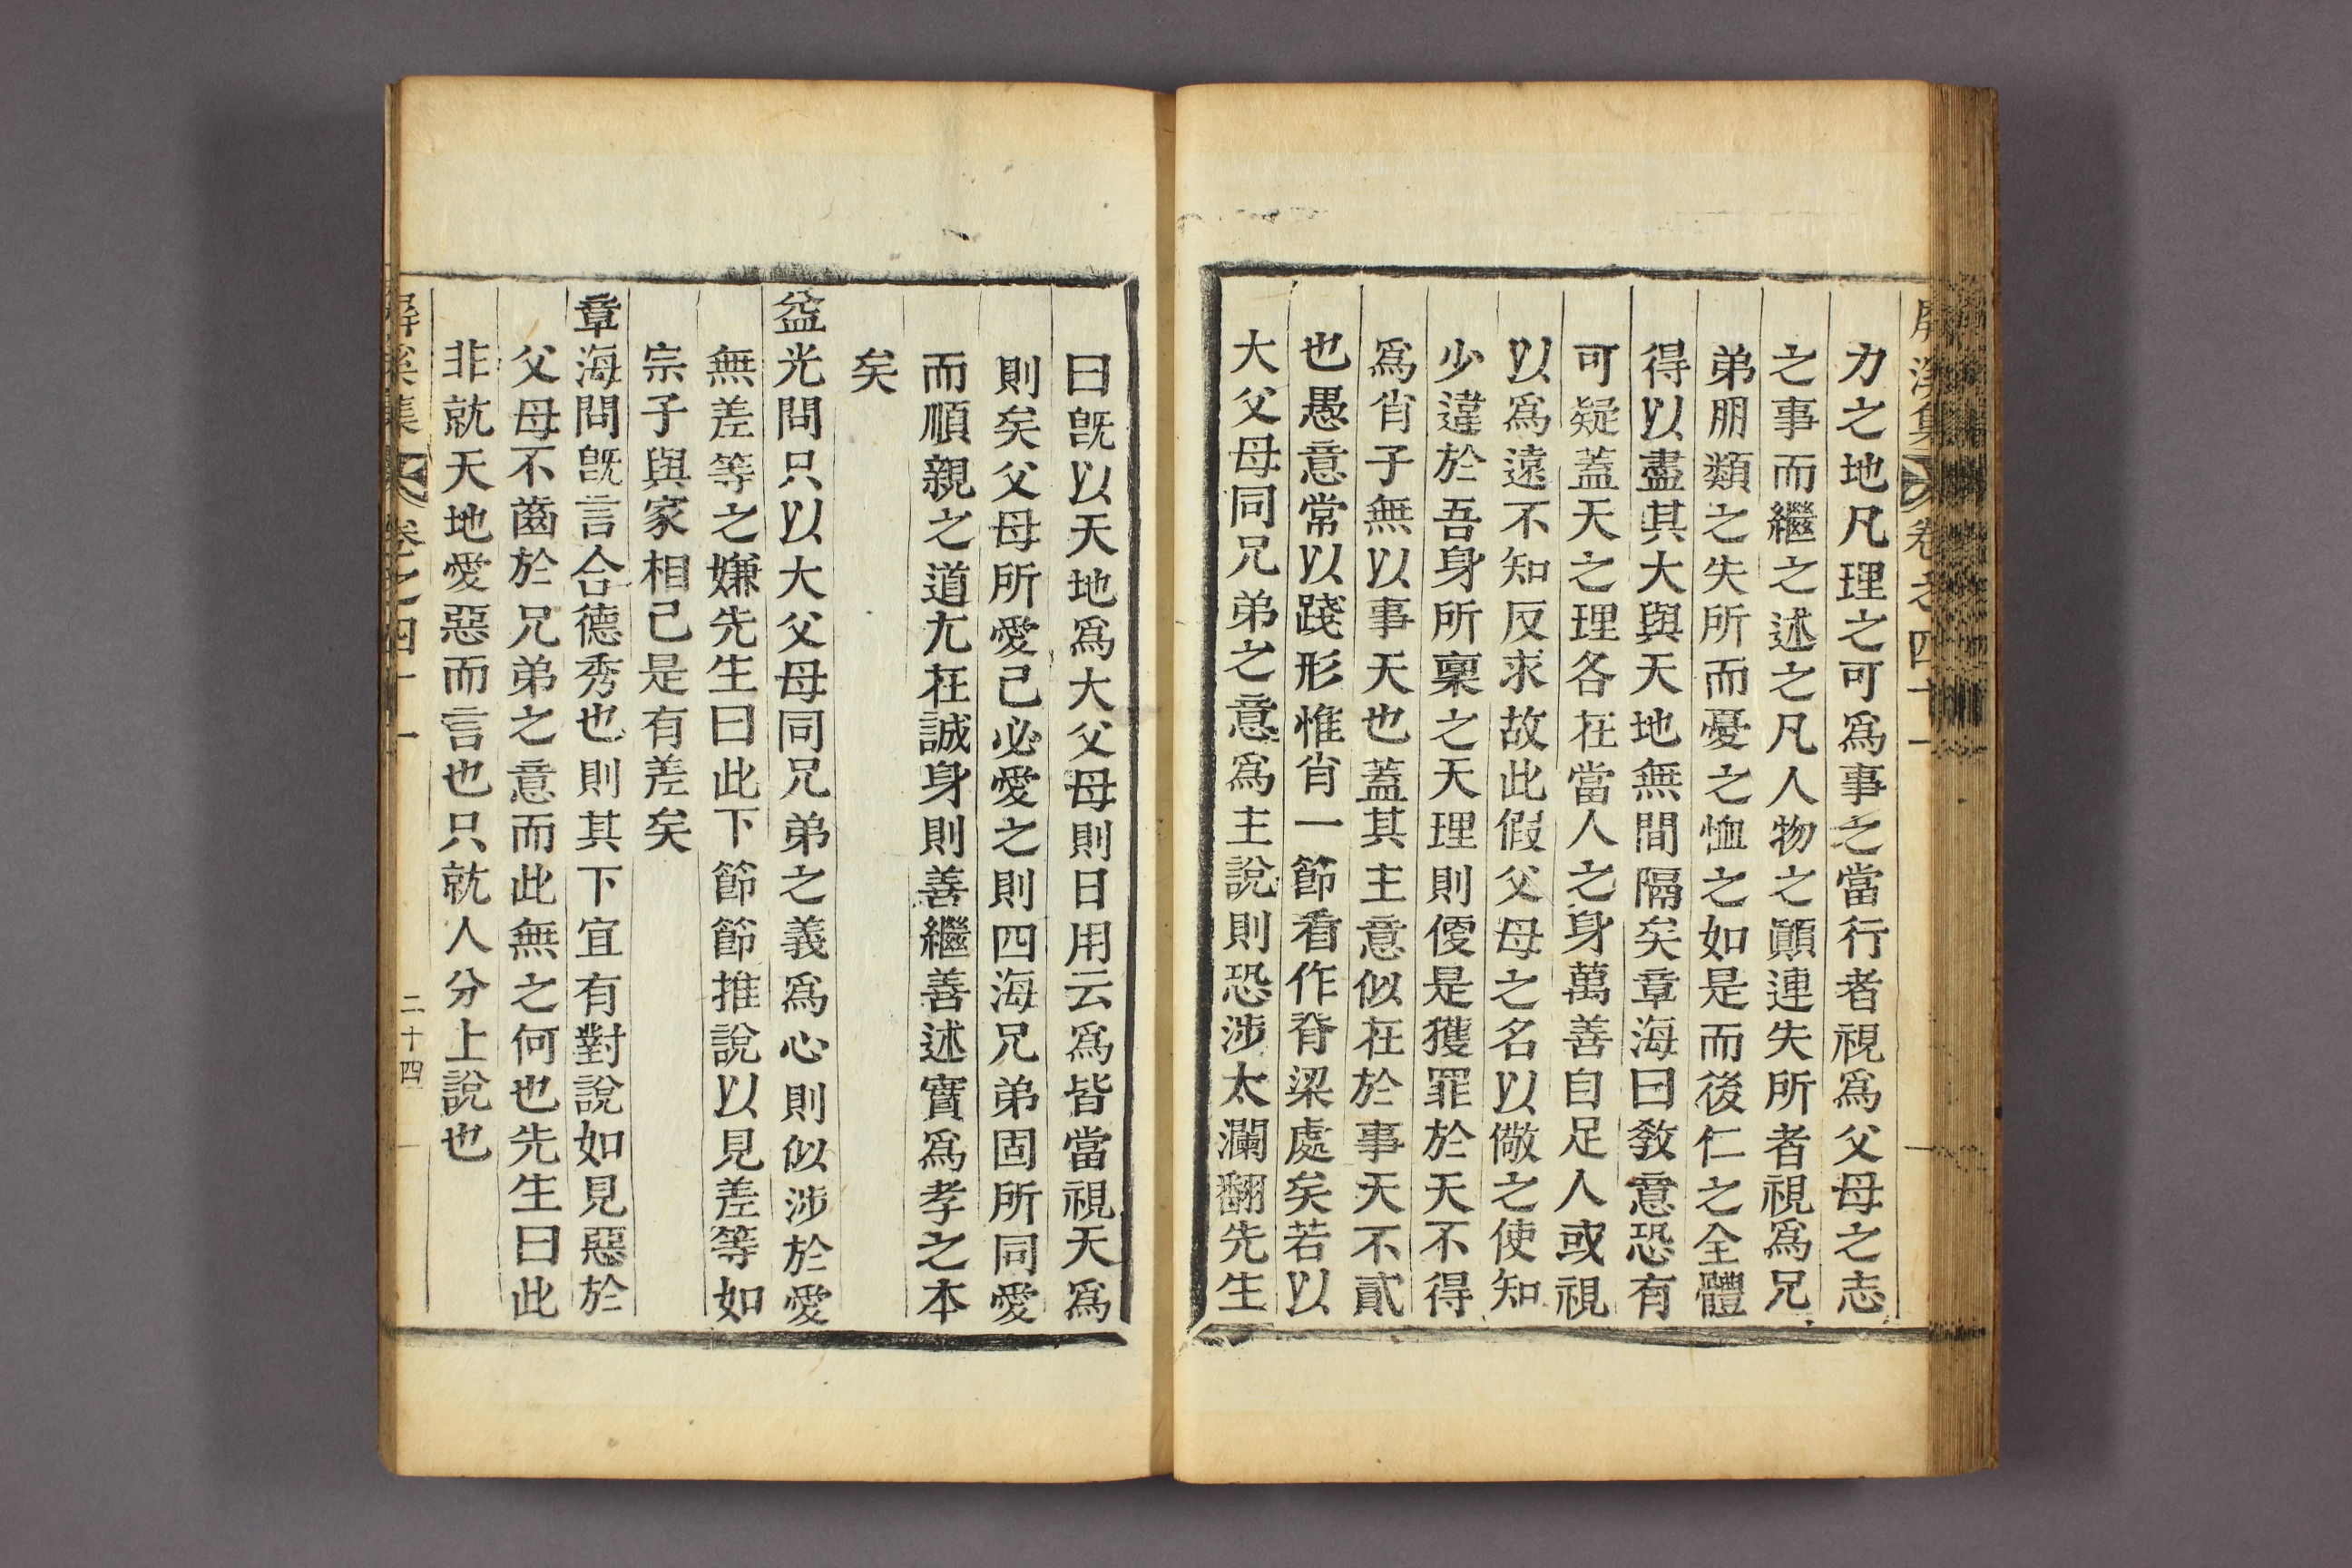 屛溪集 卷之四十一
力之地凡理之可爲事之當行者視爲父母之志
之事而繼之述之凡人物之顚連失所者視爲兄
弟朋類之失所而憂之恤之如是而後仁之全體
得以盡其大與天地無間隔矣章海曰敎意恐有
可疑蓋天之理各在當人之身萬善自足人或視
以爲遠不知反求故此假父母之名以儆之使知
少違於吾身所稟之天理則便是獲罪於天不得
爲肖子無以事天也蓋其主意似在於事天不貳
也愚意常以踐形惟肖一節看作脊梁處矣若以
大父母同兄弟之意爲主說則恐涉太瀾翻先生
曰旣以天地爲大父母則日用云爲皆當視天爲
則矣父母所愛己必愛之則四海兄弟固所同愛
而順親之道尤在誠身則善繼善述實爲孝之本
矣
益光問只以大父母同兄弟之義爲心則似涉於愛
無差等之嫌先生曰此下節節推說以見差等如
宗子與家相己是有差矣
章海問旣言合德秀也則其下宜有對說如見惡於
父母不齒於兄弟之意而此無之何也先生曰此
非就天地愛惡而言也只就人分上說也
屛溪集 卷之四十一 二十四